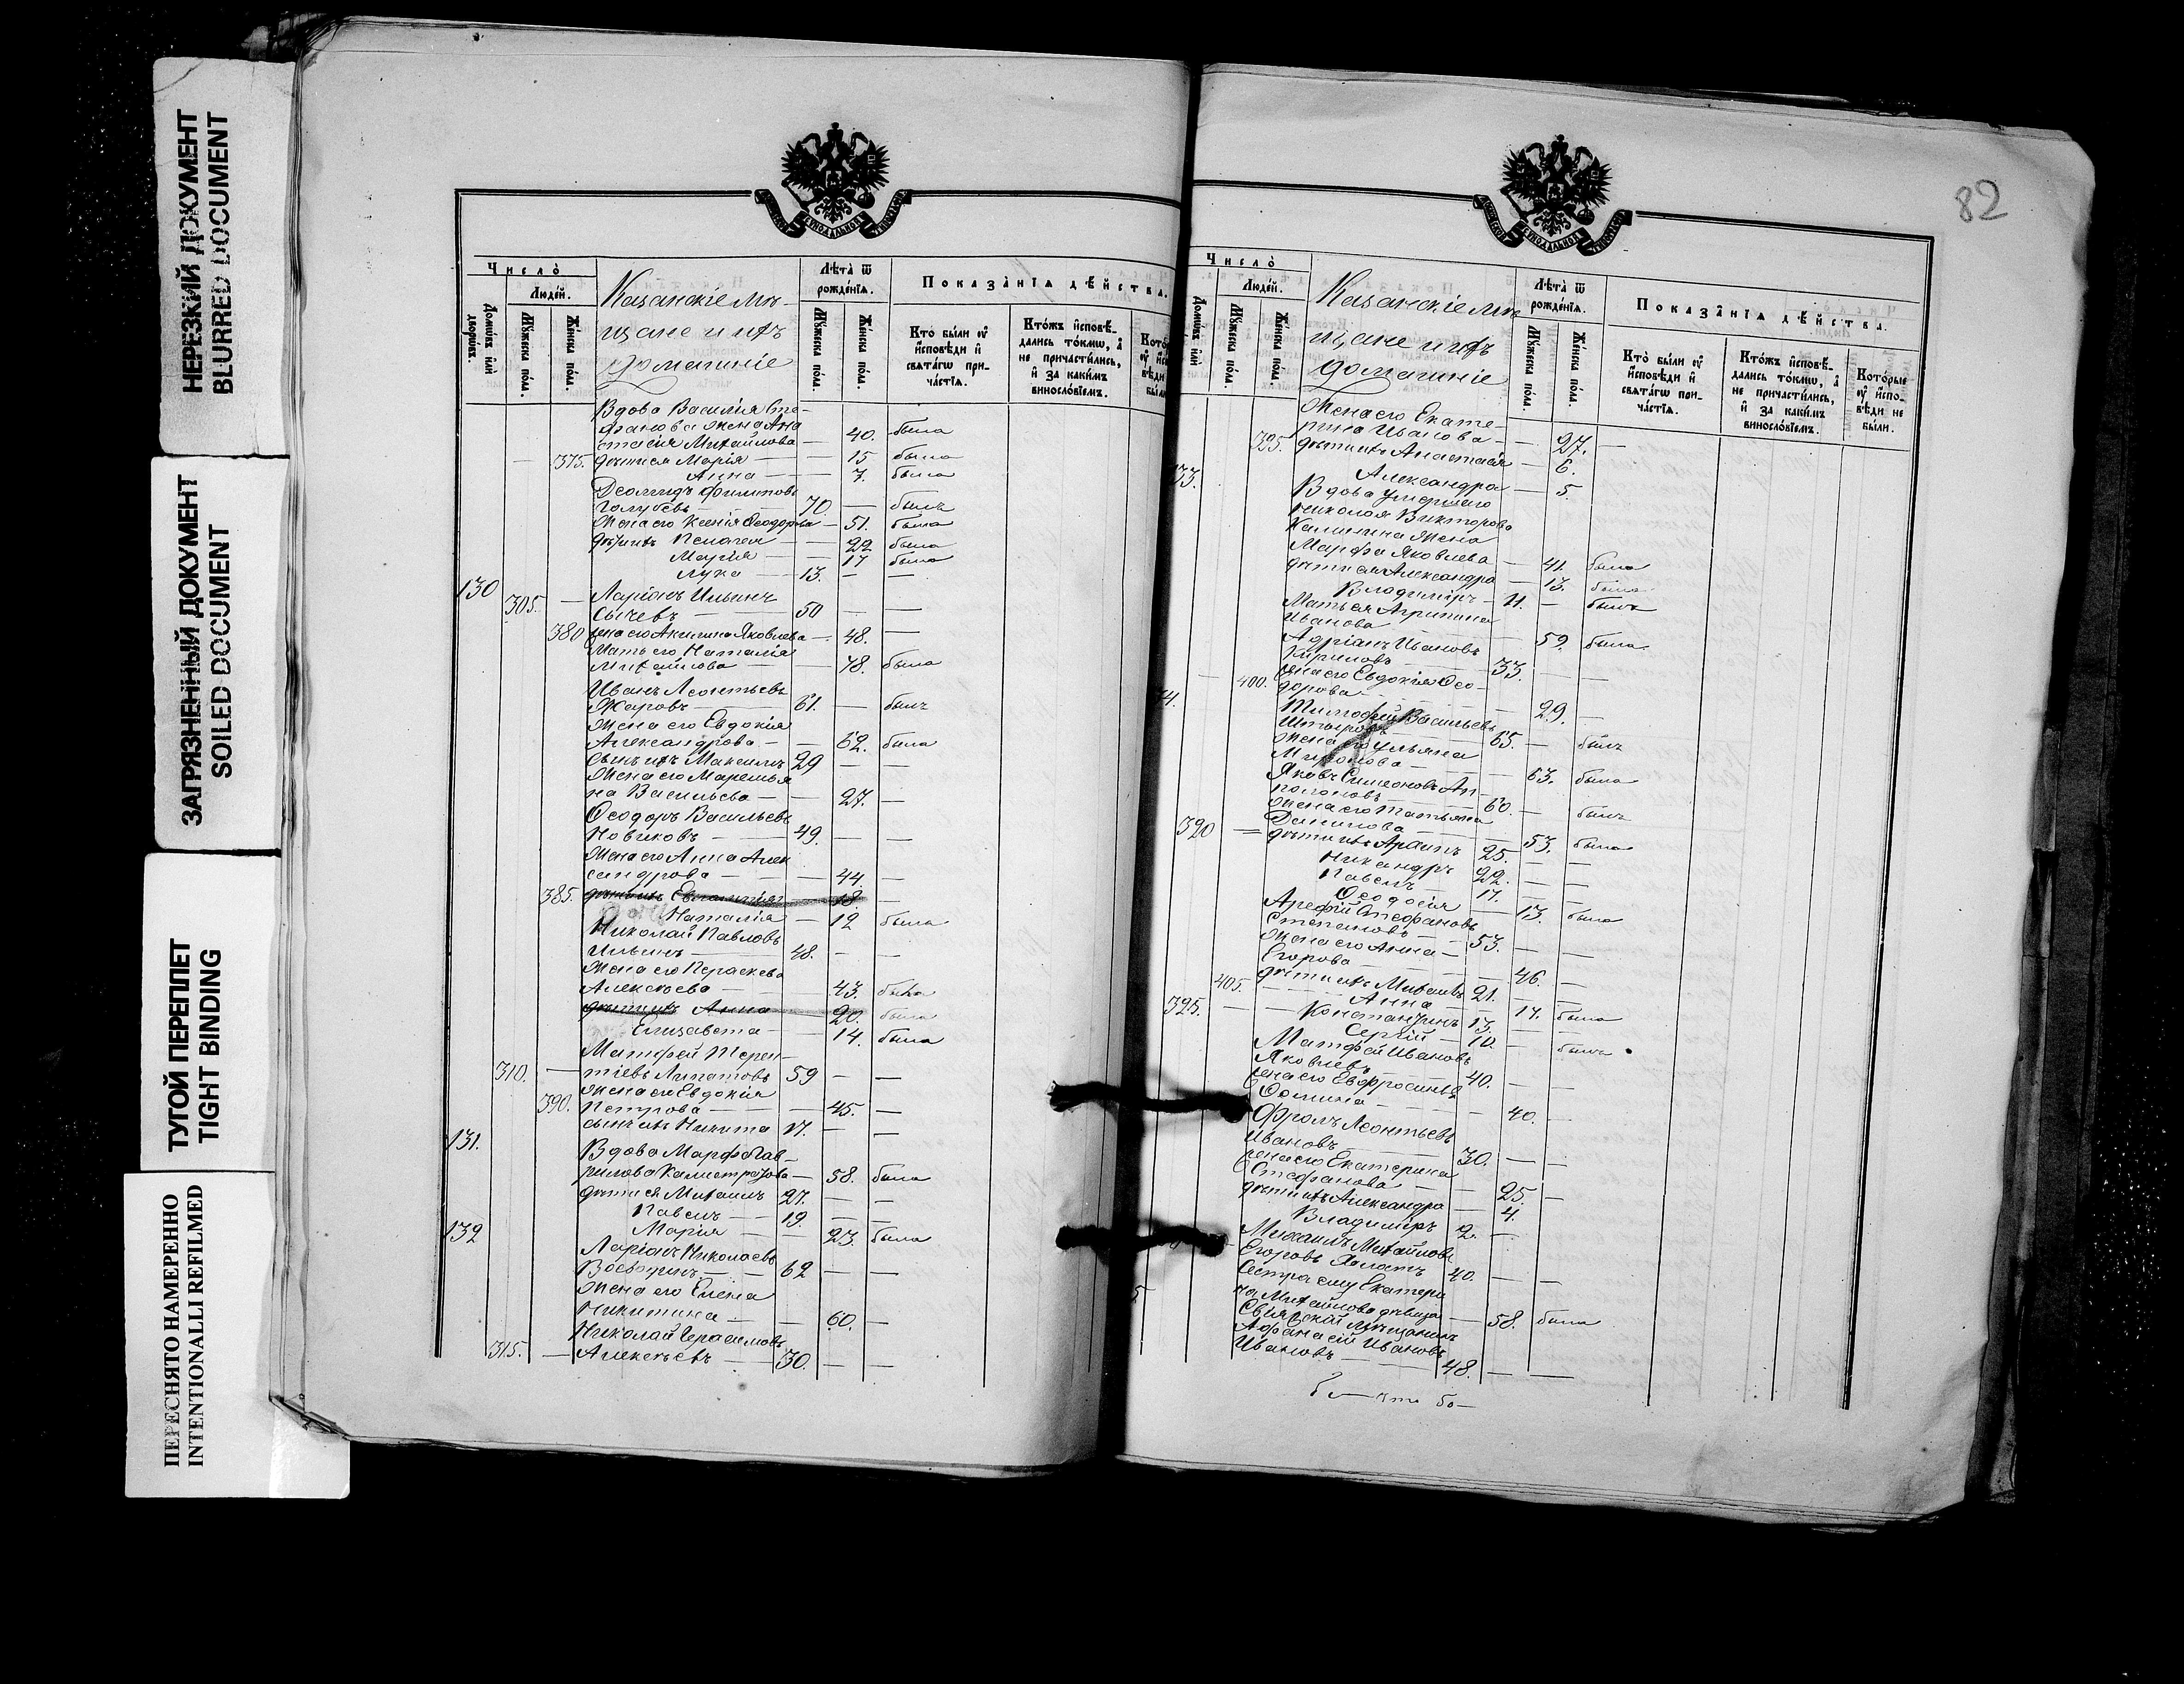 НЕРЕЗКИЙ ДОКУМЕНТ
BLURRED DOCUMENT
ЗАГРЯЗНЕННЫЙ ДОКУМЕНТ
SOILED DOCUMENT
ТУГОЙ ПЕРЕПЛЕТ
TIGHT BINDING
ПЕРЕСНЯТО НАМЕРЕННО
INTENTIONALLI REFILMED
Число̀
Людей.
Домѡвъ илй дворѡвъ.
Мꙋжеска пола.
Женска пола.
Казанскіе мѣ-
щане и ихъ
домашніе
Лѣта̀ ѿ рожденїѧ.
Мꙋжеска пола.
Женска пола.
Показа́нїѧ дѣ́йства.
Кто̀ были оу҆ и҆сповѣди и҆ свѧта́гѡ при-ча́стїѧ.
Кто́жъ и҆сповѣ́-дались то́кмѡ, а҆ не причасти́лись, и҆ за каки́мъ винослѡ́вїемъ.
Вдова Василія Сте-
фанова жена Ана
стасія Михайлова — 40. была
375. дѣти ея Марія — — 15 была
Анна — — 7. была
Леонидъ Филиповъ
Голубевъ — 70 — былъ
Жена его Ксенія Ѳеодорова — 51. была
дѣти ихъ Пелагея — 22 была
Марія — — 17 была
Лука — 13. — —
130 Ларіонъ Ильинъ
305. — Сычевъ — 50 — —
380 жена его Акилина Яковлева — 48. —
Мать его Наталія
Михайлова — — 78. была
Иванъ Леонтьевъ
Жаровъ — 61. — былъ
Жена его Евдокія
Александрова — — 62. была
Сынъ ихъ Максимъ 29 — —
Жена его Маремья
на Васильева — — 27. —
Ѳеодоръ Васильевъ
Новиковъ — 49. — —
Жена его Анна Алек
сандрова — — 44 —
385. дѣти ихъ Евлампія — 18. —
Наталія — 12 была
Николай Павловъ
Ильинъ — 48. — —
Жена его Параскева
Алексѣева — — 43. была
дѣти ихъ Анна — 20. была
Елизавета — — 14. была
Матфей Терен-
310. — тіевъ Липатовъ 59 — —
Жена его Евдокія
390. Петрова — — 45. —
сынъ ихъ Никита 17. — —
131. Вдова Марфа Гав-
рилова Калистратова — 58. была
дѣти ея Михаилъ 27. — —
Павелъ — 19. — —
132 Марія — — 23. была
Ларіонъ Николаевъ
— 62 — —
Жена его Елена
Никитина — — 60. —
Николай Герасимовъ
315. — Алексѣевъ — 30. — —
82
Число̀
Людей.
Мꙋжеска пола.
Женска пола.
Казанскіе мѣ
щане и ихъ
домашніе
Лѣта̀ ѿ рожденїѧ.
Мꙋжеска пола.
Женска пола.
Показа́нїѧ дѣ́йства.
Кто̀ были оу҆ и҆сповѣди и҆ свѧта́гѡ при-ча́стїѧ.
Кто́жъ и҆сповѣ́-дались то́кмѡ, а҆ не причасти́лись, и҆ за каки́мъ винослѡ́вїемъ.
Которые оу҆ и҆спо-вѣди не были.
Жена его Екате-
рина Иванова — — 27. —
395. дѣти ихъ Анастасія — 6.
Александра — 5.
33. Вдова умершего
Николая Викторова
Калинина жена
Марфа Яковлева — 41. была
дѣти ея Александра — 13. была
Владиміръ — 11. — былъ
Мать ея Агрипина
Иванова — — 59. была
Адріанъ Ивановъ
Кириловъ — 33. — —
400. жена его Евдокія Ѳео-
дорова — — 29. —
Тимофей Васильевъ
65. — былъ
Жена его Ульяна
Миронова — — 63. была
Яковъ Симеоновъ Ап-
полоновъ — 60. — былъ
Жена его Татьяна
Данилова — — 53. была
320 — дѣти ихъ 25. — —
Никандръ 22. — —
Павелъ — 17. — —
Ѳеодосія — 13. была
Арефій Стефановъ
Степановъ — 53. — —
Жена его Анна —
Егорова — — 46. —
дѣти ихъ Михаилъ 21. — —
405. Анна — — 17. была
325. — Константинъ 13. — —
Сергій — 10. — былъ
Матфей Ивановъ
Яковлевъ 40. — —
жена его Евфросинія
Ѳомина — — 40. —
Фролъ Леонтьевъ
Ивановъ — 30. — —
жена его Екатерина
Стефанова — — 25. —
дѣти ихъ Александра — 4.
Владиміръ 2. —
Михаилъ Михайловъ
Егоровъ 40. — —
Сестра ему Екатери
на Михайлова дѣвица — 58. была
Свіяжскій мѣщанинъ
Афанасій Ивановъ
Ивановъ — 48. — —